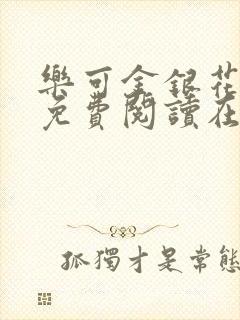 樂可金銀花
免費閱讀在
孤獨才是常態